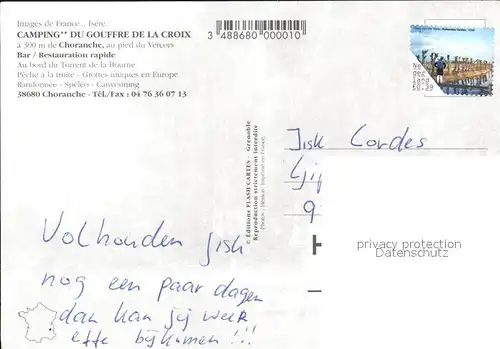 Images de France... Isère.
CAMPING** DU GOUFFRE DE LA CROIX
à 300 m de Choranche, au pied du Vercors
Bar / Restauration rapide
Au bord du Torrent de la Bourne
Pêche à la truite - Grottes uniques en Europe
Randonnée - Spéléo - Canyonning
38680 Choranche - Tél./Fax : 04 76 36 07 13
3 488680 000010
Ne
der
land
€0,39
© Editions FLASH'CARTES - Grenoble
Reproduction strictement interdite
Jisk Cordes
privacy protection
Datenschutz
Volhouden Jisk
nog een paar dagen
dan kan jij weer
effe bijkomen !!!